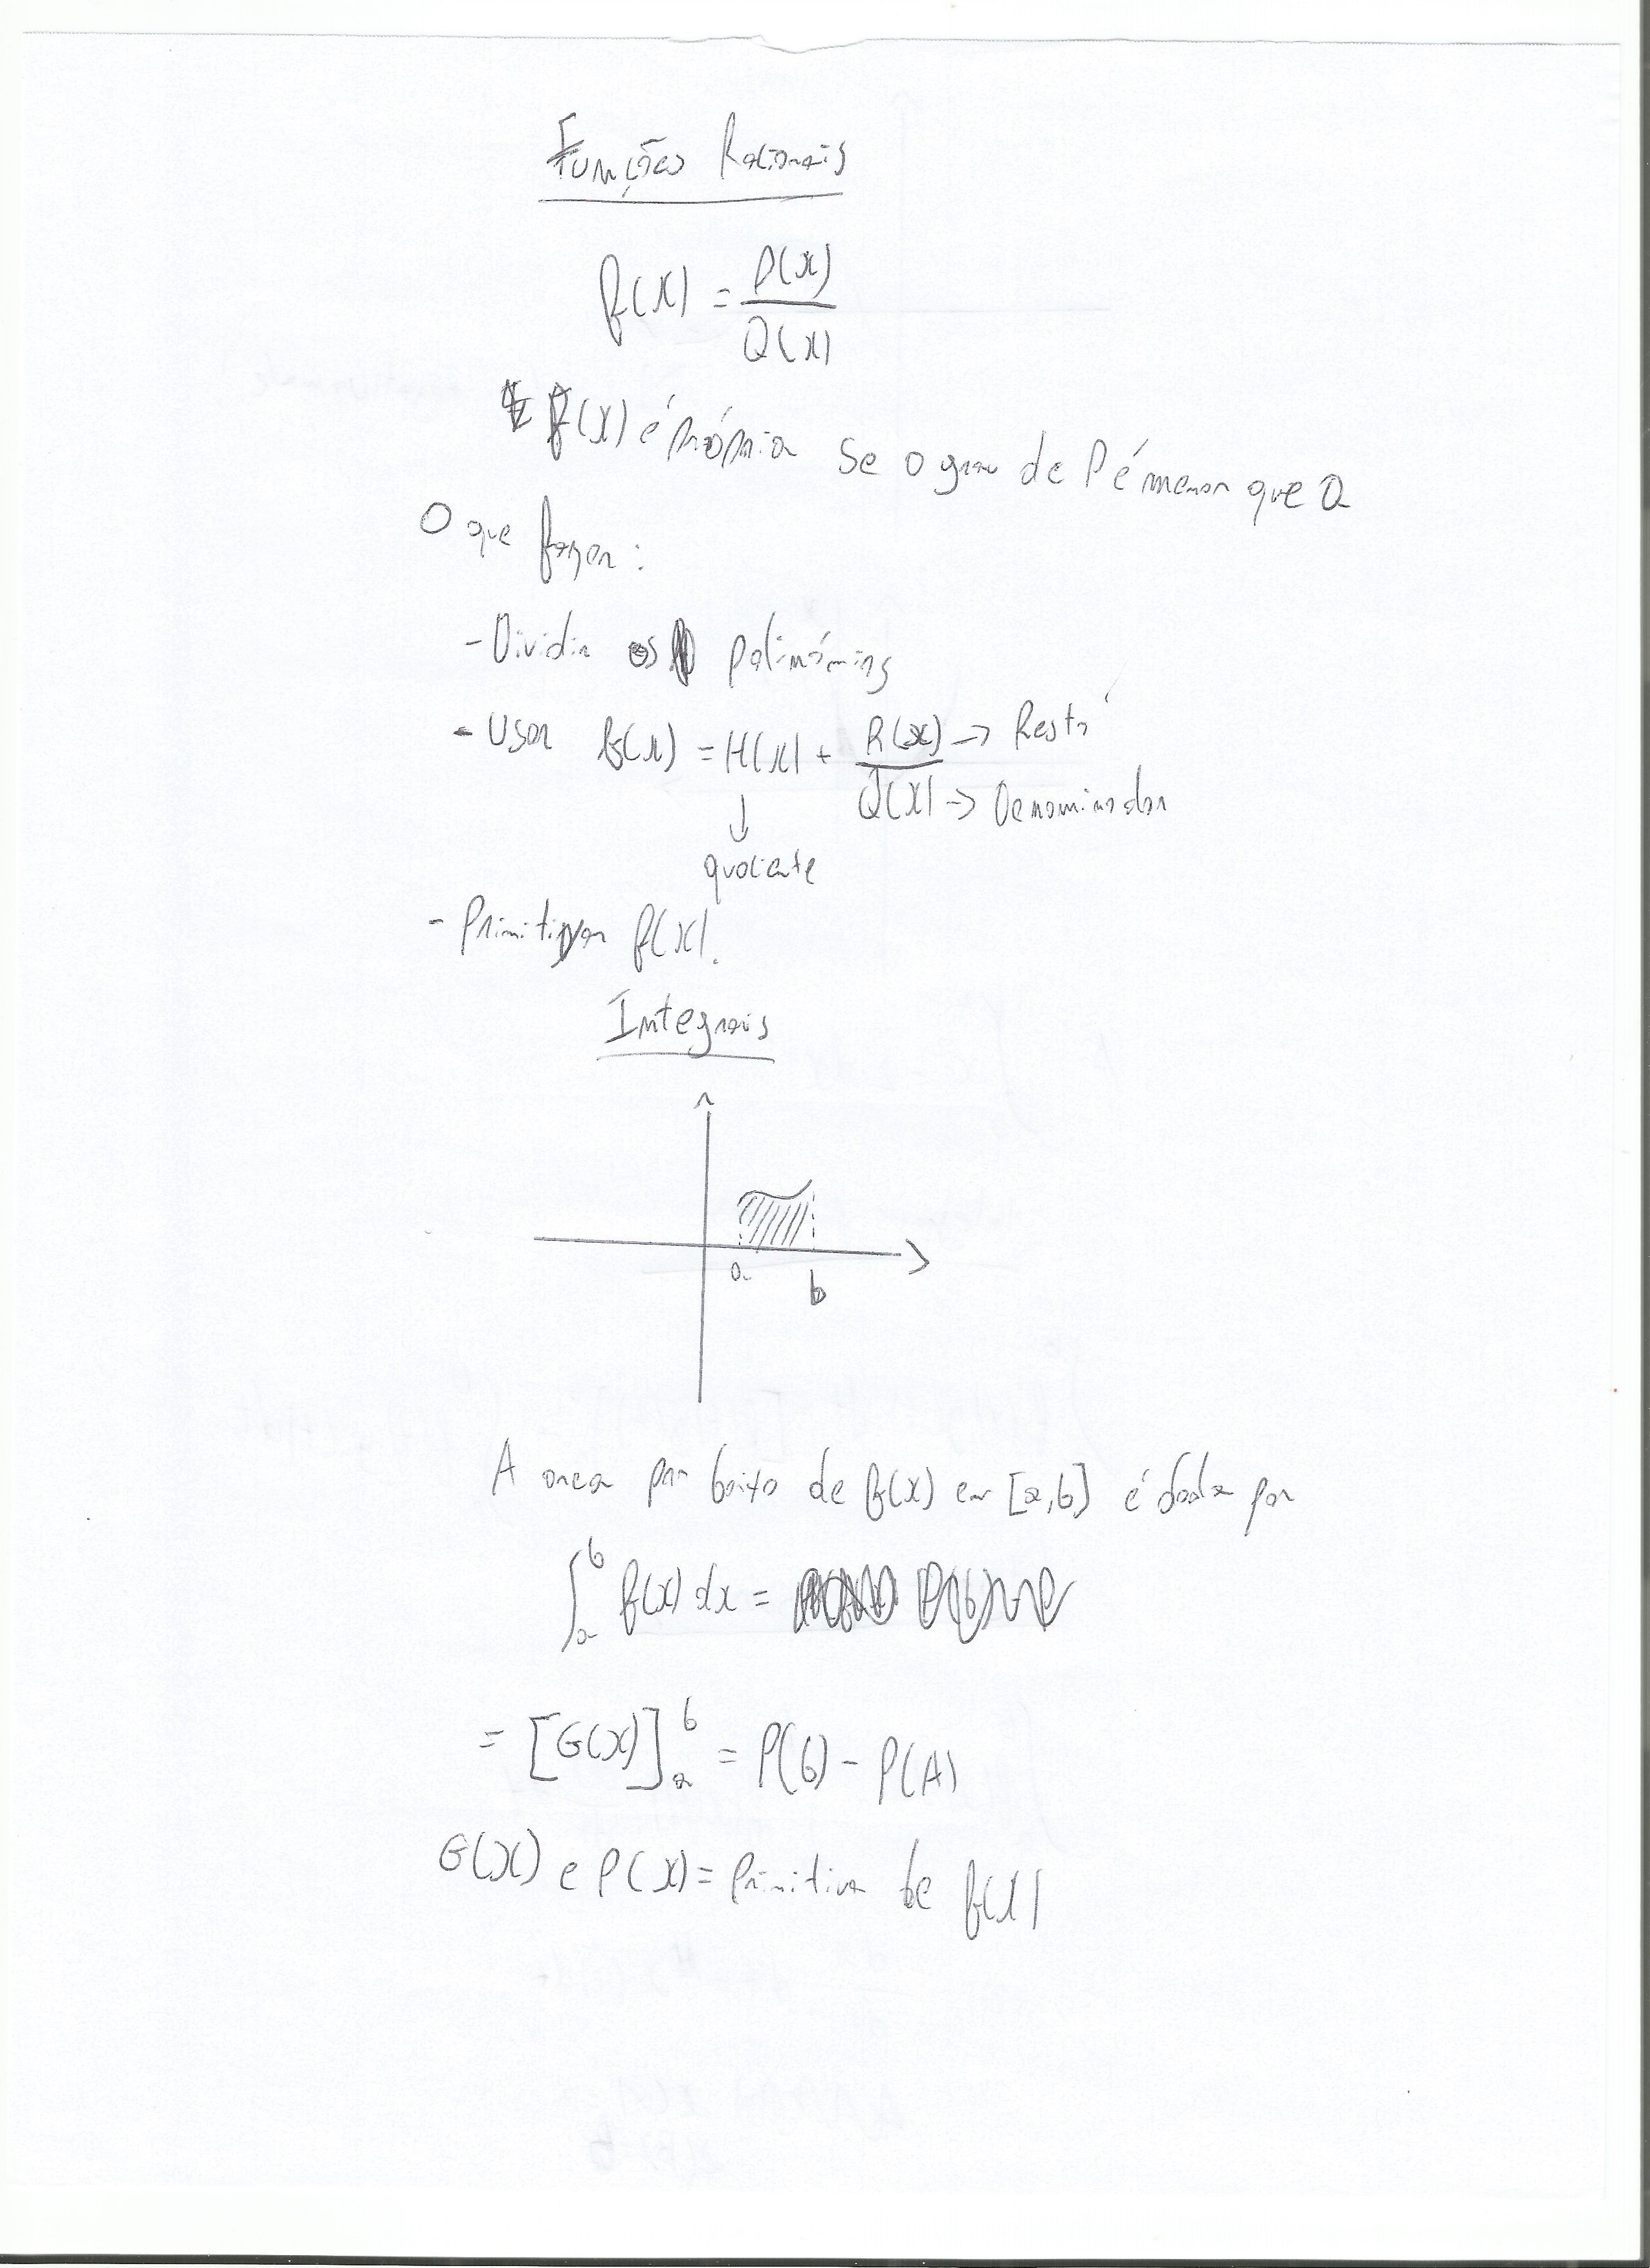 Funções Racionais
f(x) = P(x)/Q(x)
f(x) é própria se o grau de P é menor que Q
O que fazer:
- Dividir os polinómios
- Usar f(x) = H(x) + R(x)/Q(x)
→ Resto
→ Denominador
↓
quociente
- Primitivar f(x).
Integrais
a
b
A area por baixo de f(x) em [a,b] é dada por
∫_a^b f(x) dx =
= [G(x)]_a^b = P(b) - P(A)
G(x) e P(x) = Primitiva de f(x)